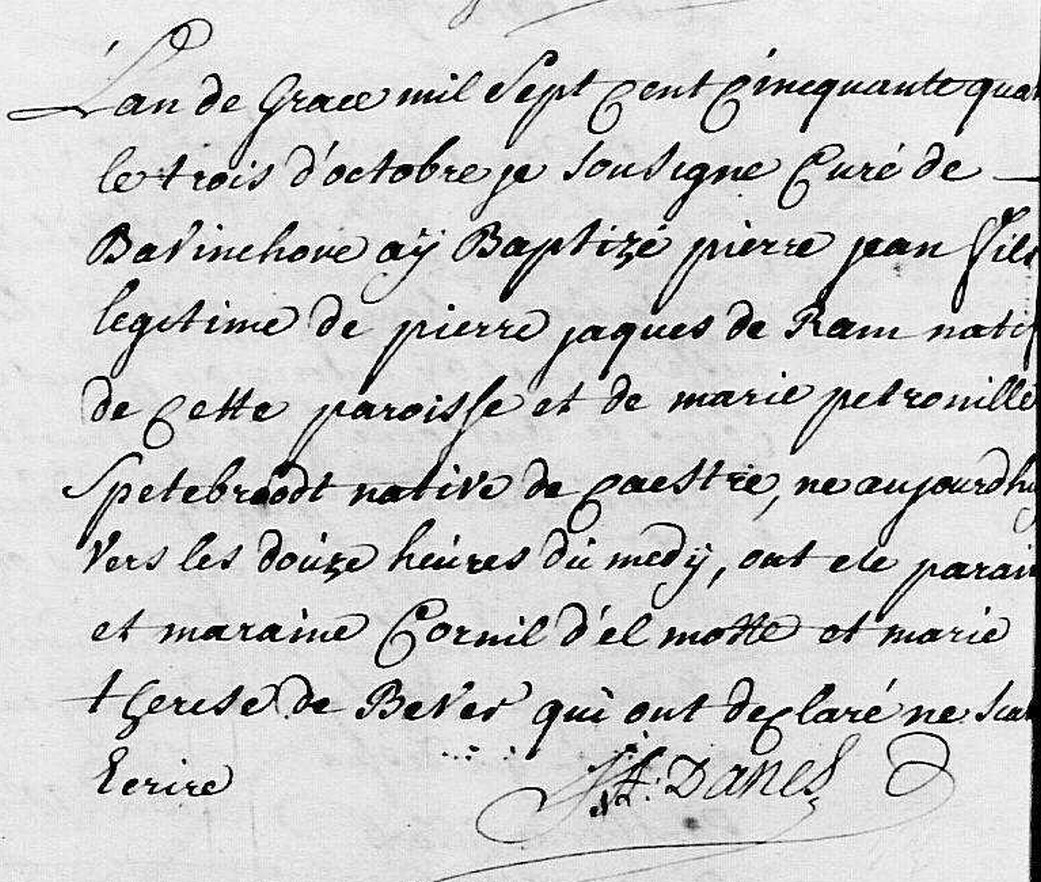 L'an de Grace mil Sept Cent Cincquante quat
le trois d'octobre je sousigne Curé de
Bavinchove aÿ Baptizé pierre jean fils
legitime de pierre jaques de Ram natif
de Cette paroisse et de marie petronille
Spetebroodt native de Caestre, ne aujourdhu
vers les douze heures du medÿ, ont ete parain
et maraine Cornil d'el motte et marie
therese de Bever qui ont declaré ne scav
Ecrire
Danes